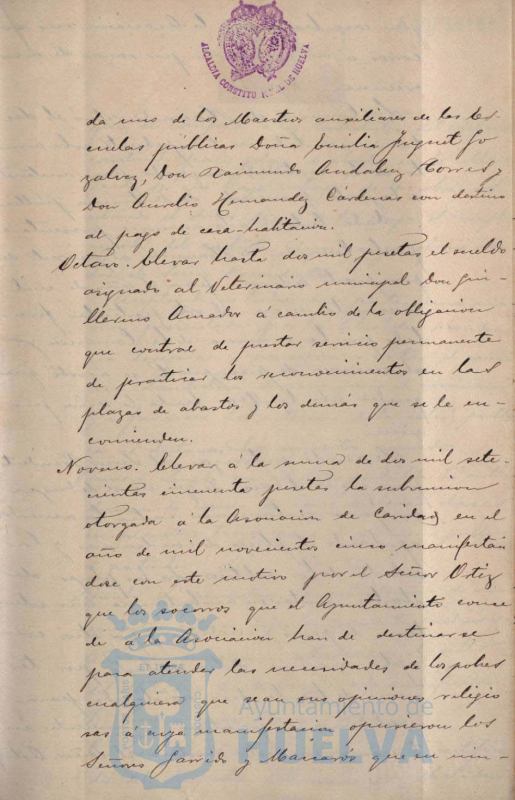 ALCALDIA CONSTITUCIONAL DE HUELVA
da uno de los Maestros auxiliares de las Es-
cuelas públicas Doña Emilia Juguet Go
zalvez, Don Raimundo Andaluz Torres y
Don Aurelio Hernandez Cárdenas con destino
al pago de casa-habitacion.
Octavo. Elevar hasta dos mil pesetas el sueldo
asignado al Veterinario municipal Don Gui-
llermo Amador á cambio de la obligacion
que contrae de prestar servicio permanente
de practicar los reconocimientos en las
plazas de abastos y los demás que se le en-
comienden.
Noveno. Elevar á la suma de dos mil sete-
cientas cincuenta pesetas la subvencion
otorgada á la Asociacion de Caridad en el
año de mil novecientos cinco manifestán
dose con este motivo por el Señor Ortiz
que los socorros que el Ayuntamiento conce
de á la Asociacion han de destinarse
para atender las necesidades de los pobres
cualquiera que sean sus opiniones religio
sas á cuya manifestacion opusieron los
Señores Garrido y Macarós que en nin-
Ayuntamiento de
HUELVA